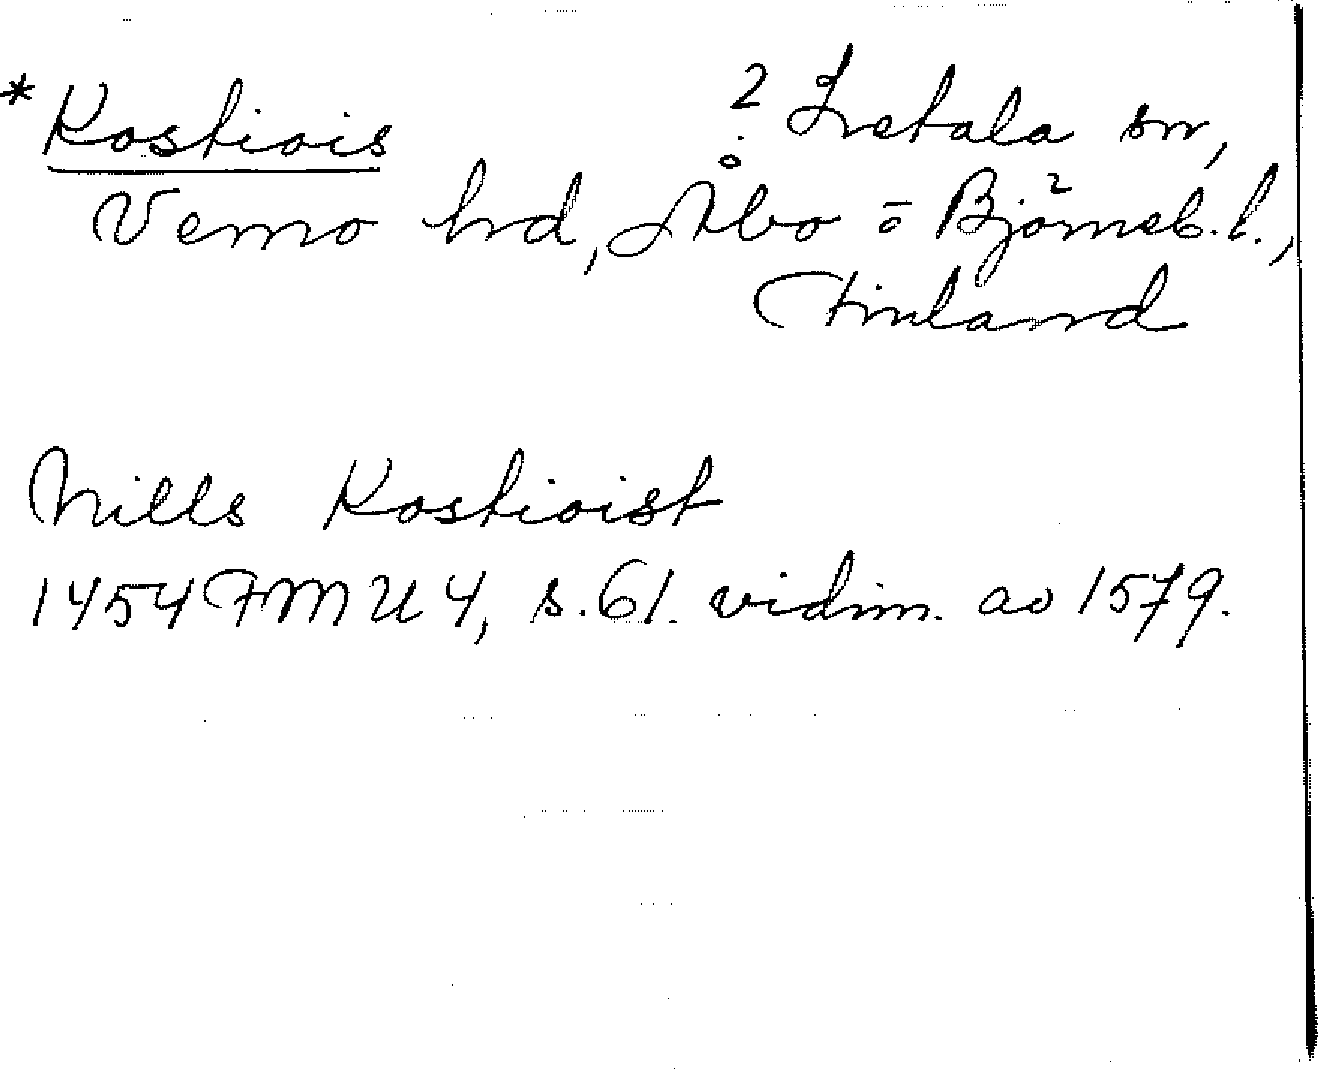 * Kostiois ? Letala sn,
Vemo hd, Åbo o Björneb. l.,
Finland
Nills Kostioist
1454 FMU 4, s. 61. vidim. ao 1579.